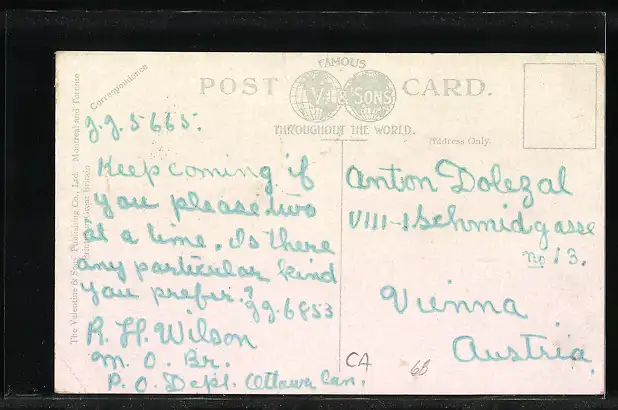 FAMOUS
POST CARD.
V. & SONS
THROUGHOUT THE WORLD.
Correspondence
Address Only.
The Valentine & Sons Publishing Co., Ltd. Montreal and Toronto
Great Britain
g.g. 5665.
Keep coming if
you please two
at a time. Is there
any particular kind
you prefer?
g.g. 6853
R. H. Wilson
M. O. Br.
P. O. Dept. Ottawa Can.
Anton Dolezal
VIII-1 Schmidgasse
no 13.
Vienna
Austria.
CA
68